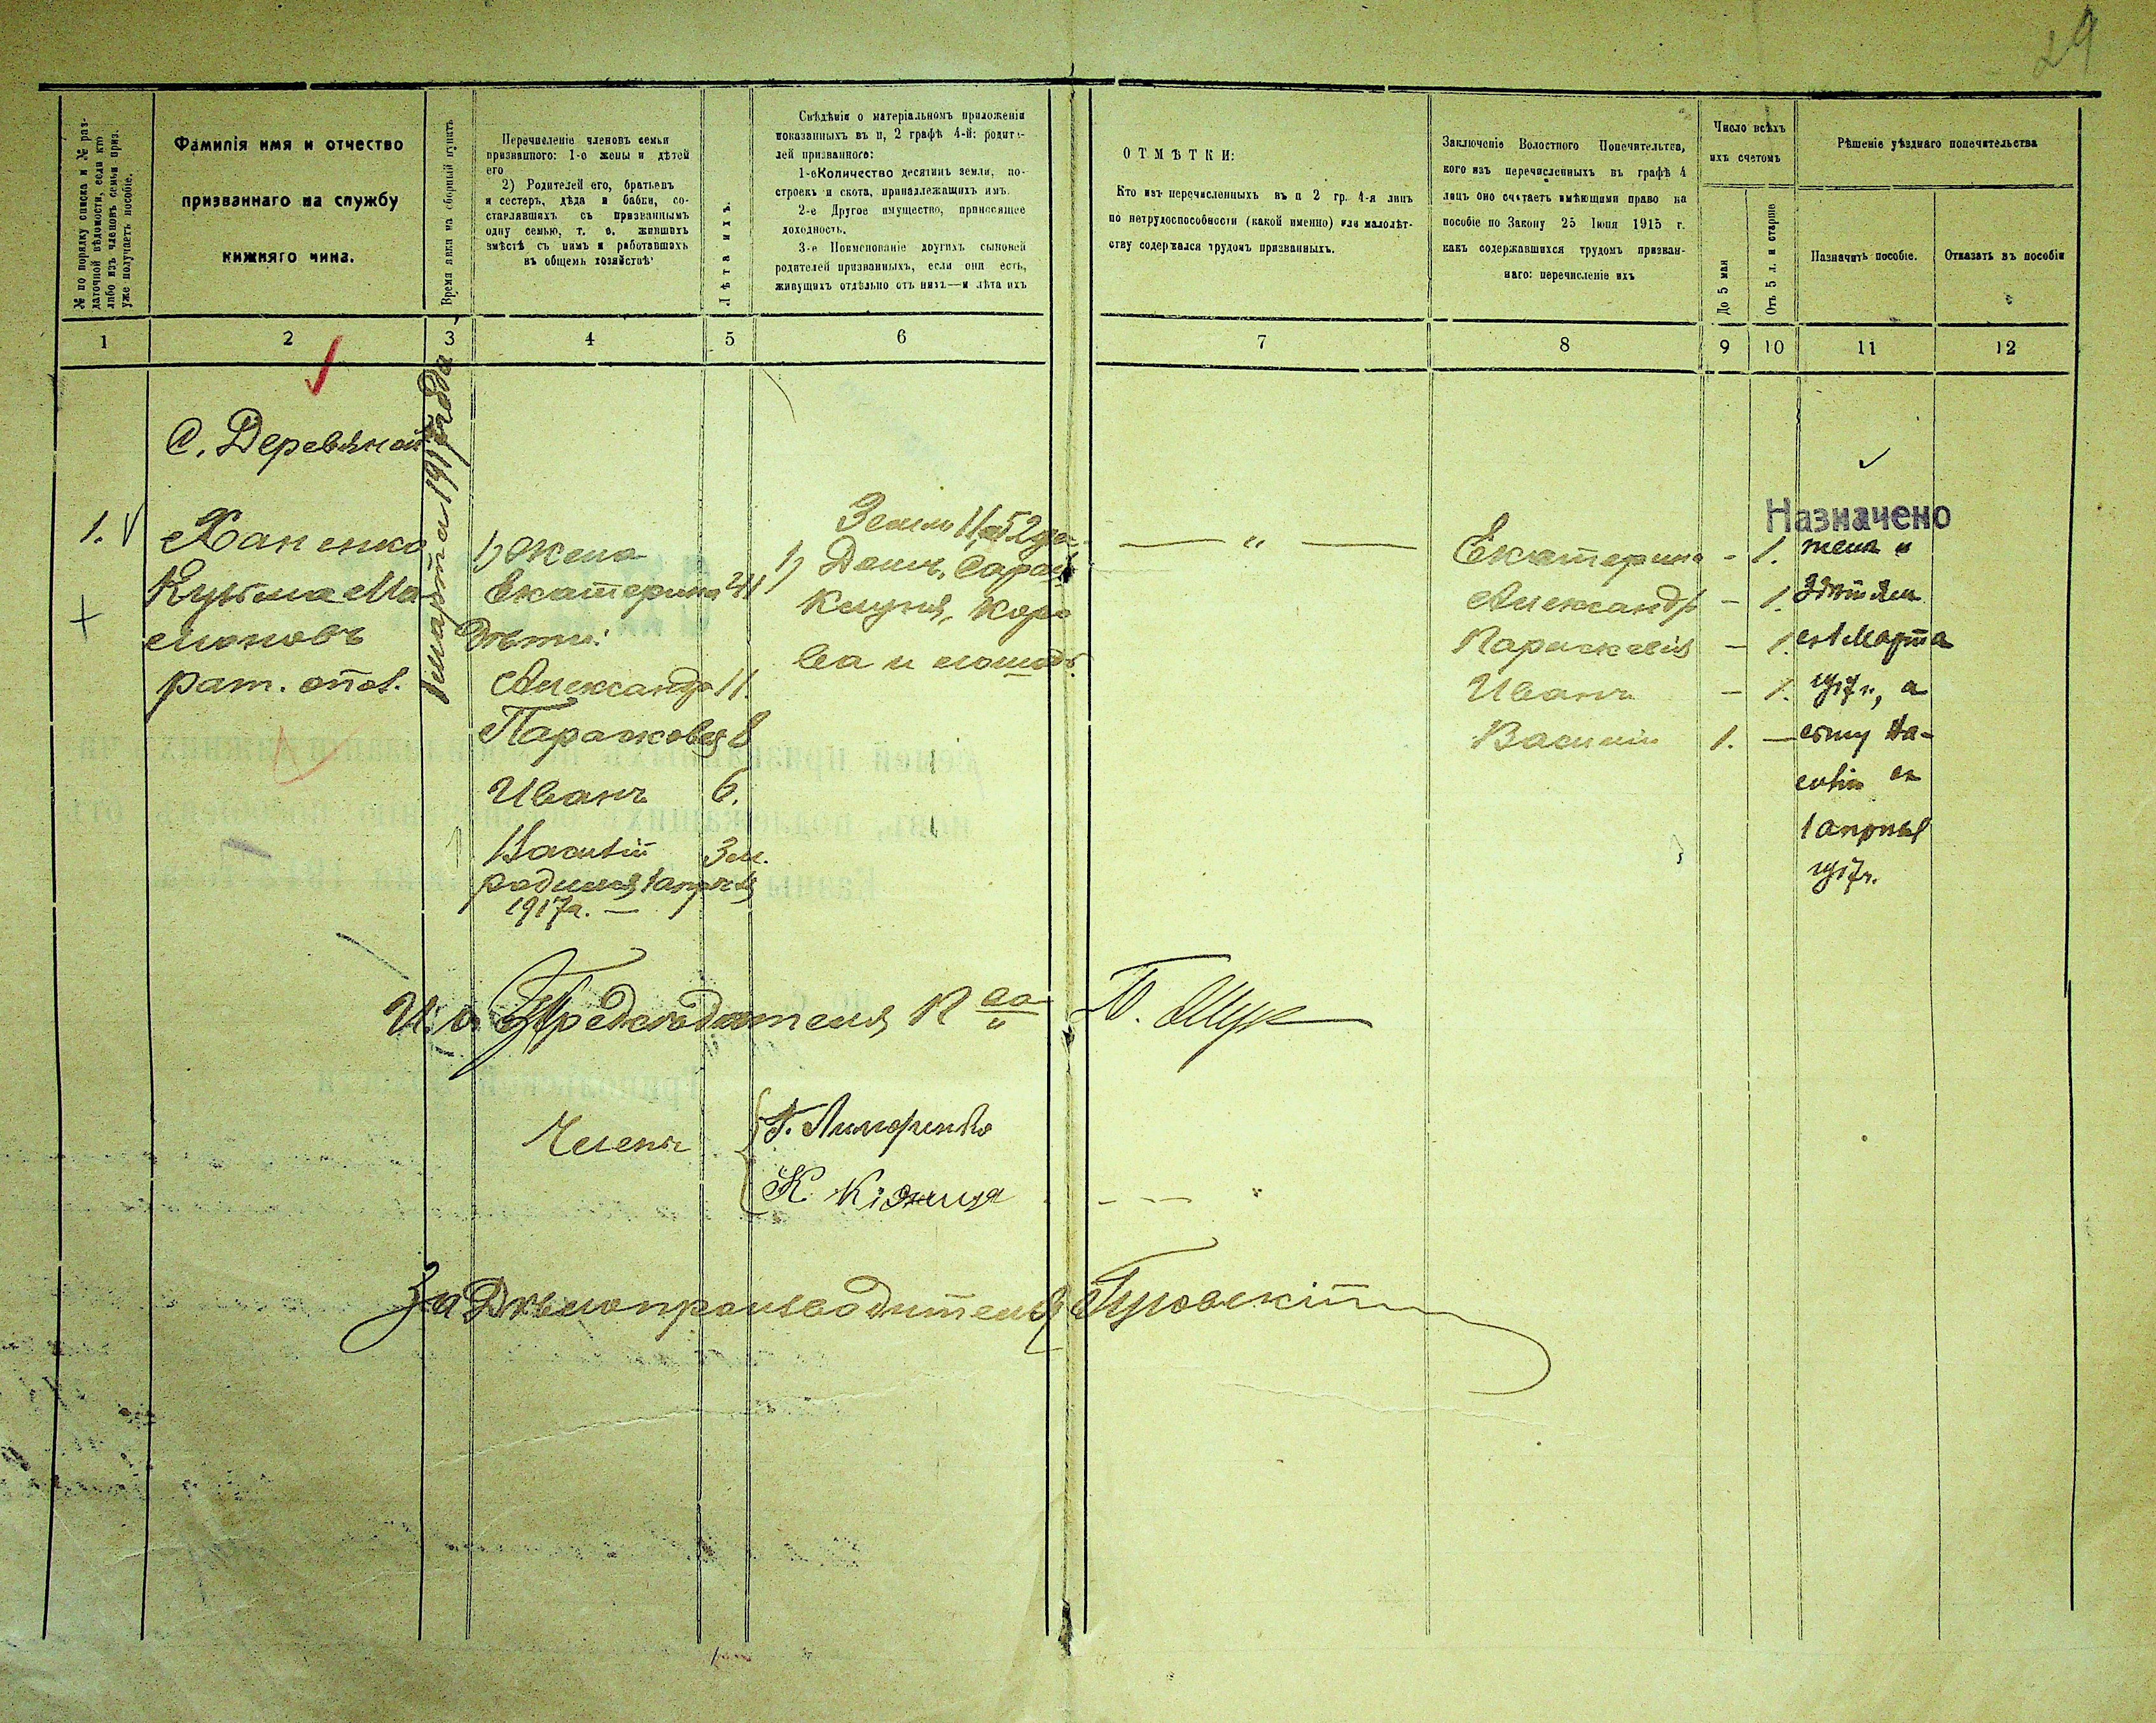 29
№ по порядку списка и № раз-
даточной вѣдомости, если кто
либо изъ членовъ семьи приз.
уже получаетъ пособіе.
Фамилія имя и отчество
призваннаго на службу
нижняго чина.
Время явки на сборный пунктъ
Перечисленіе членовъ семьи
призваннаго: 1-е жены и дѣтей
его
2) Родителей его, братьевъ
и сестеръ, дѣда и бабки, со-
ставлявшихъ съ призваннымъ
одну семью, т. е. жившихъ
вмѣстѣ съ нимъ и работавшихъ
въ общемъ хозяйствѣ
Лѣта ихъ.
Свѣдѣнія о матеріальномъ приложеніи
показанныхъ въ п, 2 графѣ 4-й: родите-
лей призваннаго:
1-е Количество десятинъ земли, по-
строекъ и скота, принадлежащихъ имъ.
2-е Другое имущество, приносящее
доходность.
3-е Поименованіе другихъ сыновей
родителей призванныхъ, если они есть,
живущихъ отдѣльно отъ нихъ—и лѣта ихъ
ОТМѢТКИ:
Кто изъ перечисленныхъ въ п 2 гр. 4-я лицъ
по нетрудоспособности (какой именно) или малолѣт-
ству содержался трудомъ призванныхъ.
Заключеніе Волостного Попечительства,
кого изъ перечисленныхъ въ графѣ 4
лицъ оно считаетъ имѣющими право на
пособіе по Закону 25 Іюня 1915 г.
какъ содержавшихся трудомъ призван-
наго: перечисленіе ихъ
Число всѣхъ
ихъ счетомъ
До 5 мал
Отъ 5 л. и старше
Рѣшеніе уѣзднаго попечительства
Назначить пособіе.
Отказать въ пособіи
1 2 3 4 5 6 7 8 9 10 11 12
С. Деревяной
1 марта 1917 года
1.
Ханенко
Кузьма Ма-
моновъ
рат. опол.
1) Жена
Екатерина
Дѣти:
Александр 11.
Парасковея 8
Иванъ 6.
Василій 3 м.
родился 1 апрѣля
1917 г. —
Земли
1) Домъ, Сарай
Клуня, коро
ва и лошадь.
— „ —
Екатерина - 1.
Александръ - 1.
Параскевія - 1.
Иванъ - 1.
Василій 1. —
Назначено
жена и
3 дѣтям
съ 1 Марта
1917 г., а
сыну Ва-
силію съ
1 апреля
1917 г.
И. о. Предсѣдателя П ва
Членъ
Г. Лимаренко
К.
За Дѣлопроизводителя